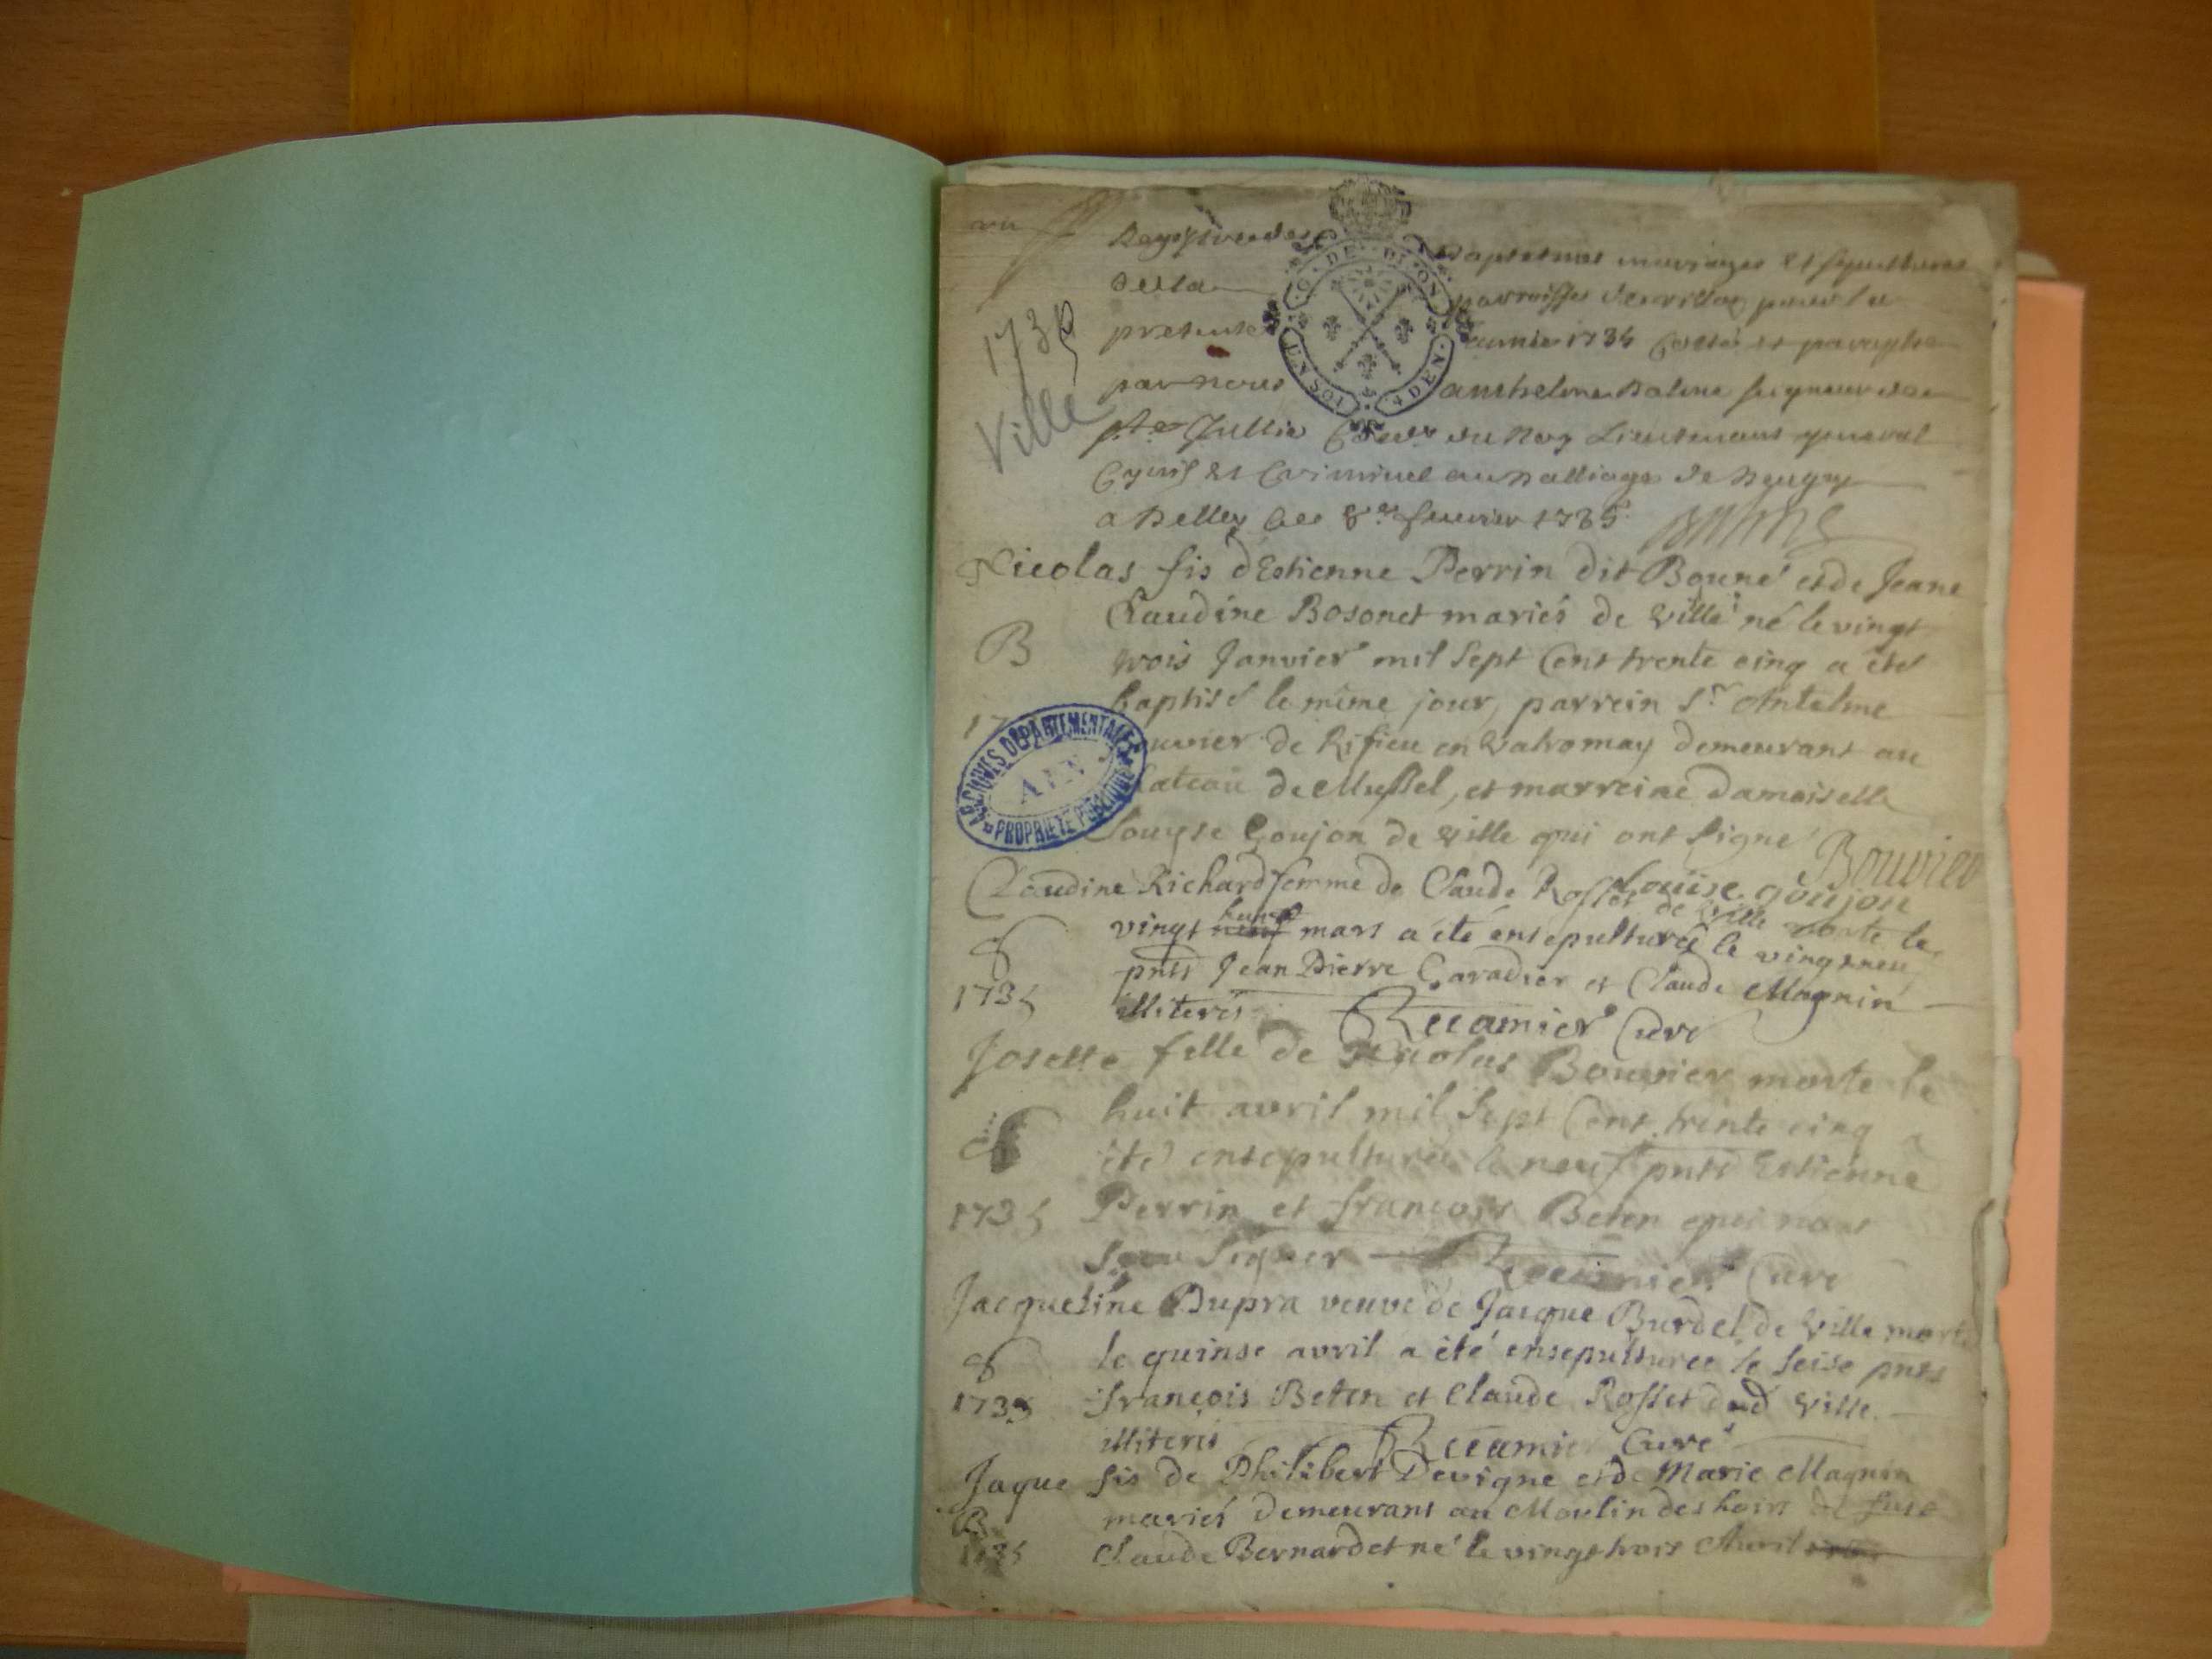 vu
Regystre des Baptesmes mariages et sepultures
de la parroisse de ville pour la
presente année 1735 Cotté et paraphé
par nous anthelme Balme seigneur de
Ste Jullie Coner du Roy Lieutenant general
Cyvil et Criminel au Balliage de Beugey
a Belley ce 8e fevrier 1735 Balme
1735
Ville
G. DE DIJON
UN SOL 4 DEN.
Nicolas fis d'Estienne Perrin dit Bouné et de Jeane
Claudine Bosonet mariés de Ville né le vingt
B
trois Janvier mil sept Cent trente cinq a été
baptisé le même jour, parrein Sr Antelme
17
Bouvier de Rifieu en Valromay demeurant au
chateau de Mussel, et marreine damoiselle
Louyse Goujon de Ville qui ont signé Bouvier
ARCHIVES DÉPARTEMENTALES
AIN
PROPRIÉTÉ PUBLIQUE
louise goujon
Claudine Richard femme de Claude Rosset de Ville morte le
vingt huit mars a été ensepulturée le vingt neuf
S
pnts Jean Pierre Garadier et Claude Magnin
1735
illiterés Recamier Curé
Josette fille de Nicolas Bouvier morte le
huit avril mil sept Cent trente cinq a
S
été ensepulturée le neuf pnts Estienne
1735 Perrin et françois Beten qui n'ont
sceu signer Recamier Curé
Jacqueline Dupra veuve de Jacque Burdel de Ville morte
S le quinse avril a été ensepulturée le seise pnts
1735 françois Beten et Claude Rosset dud Ville
illiterés Recamier Curé
Jaque fis de Philibert Devigne et de Marie Magnin
B mariés demeurans au Moulin des hoirs de
1735 Claude Bernardet né le vingt trois Avril